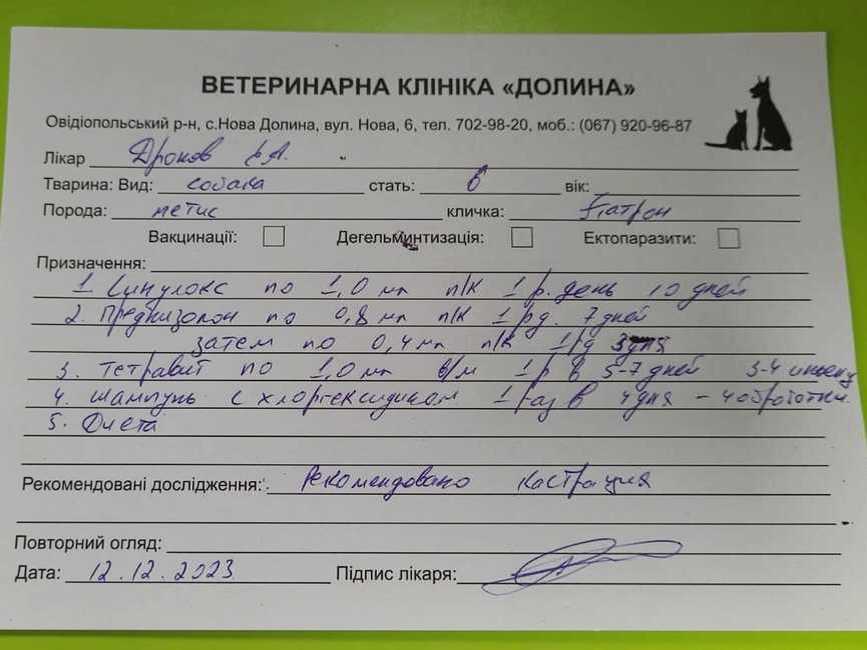 ВЕТЕРИНАРНА КЛІНІКА «ДОЛИНА»
Овідіопольський р-н, с.Нова Долина, вул. Нова, 6, тел. 702-98-20, моб.: (067) 920-96-87
Лікар Дронов
Тварина: Вид: собака стать: вік:
Порода: метис кличка: Патрон
Вакцинації: Дегельминтизація: Ектопаразити:
Призначення:
1. Синулокс по 1,0 мл п/к 1 р. день 10 дней
2. Преднизолон по 0,8 мл п/к 1 рд. 7 дней
затем по 0,4 мл п/к 1 рд 3 дня
3. Тетравит по 1,0 мл в/м 1 р в 5-7 дней 3-4
4. Шампунь с хлоргексидином 1 раз в 4 дня - 4 обработки
5. Диета
Рекомендовані дослідження: Рекомендовано кастрация
Повторний огляд:
Дата: 12.12.2023 Підпис лікаря: